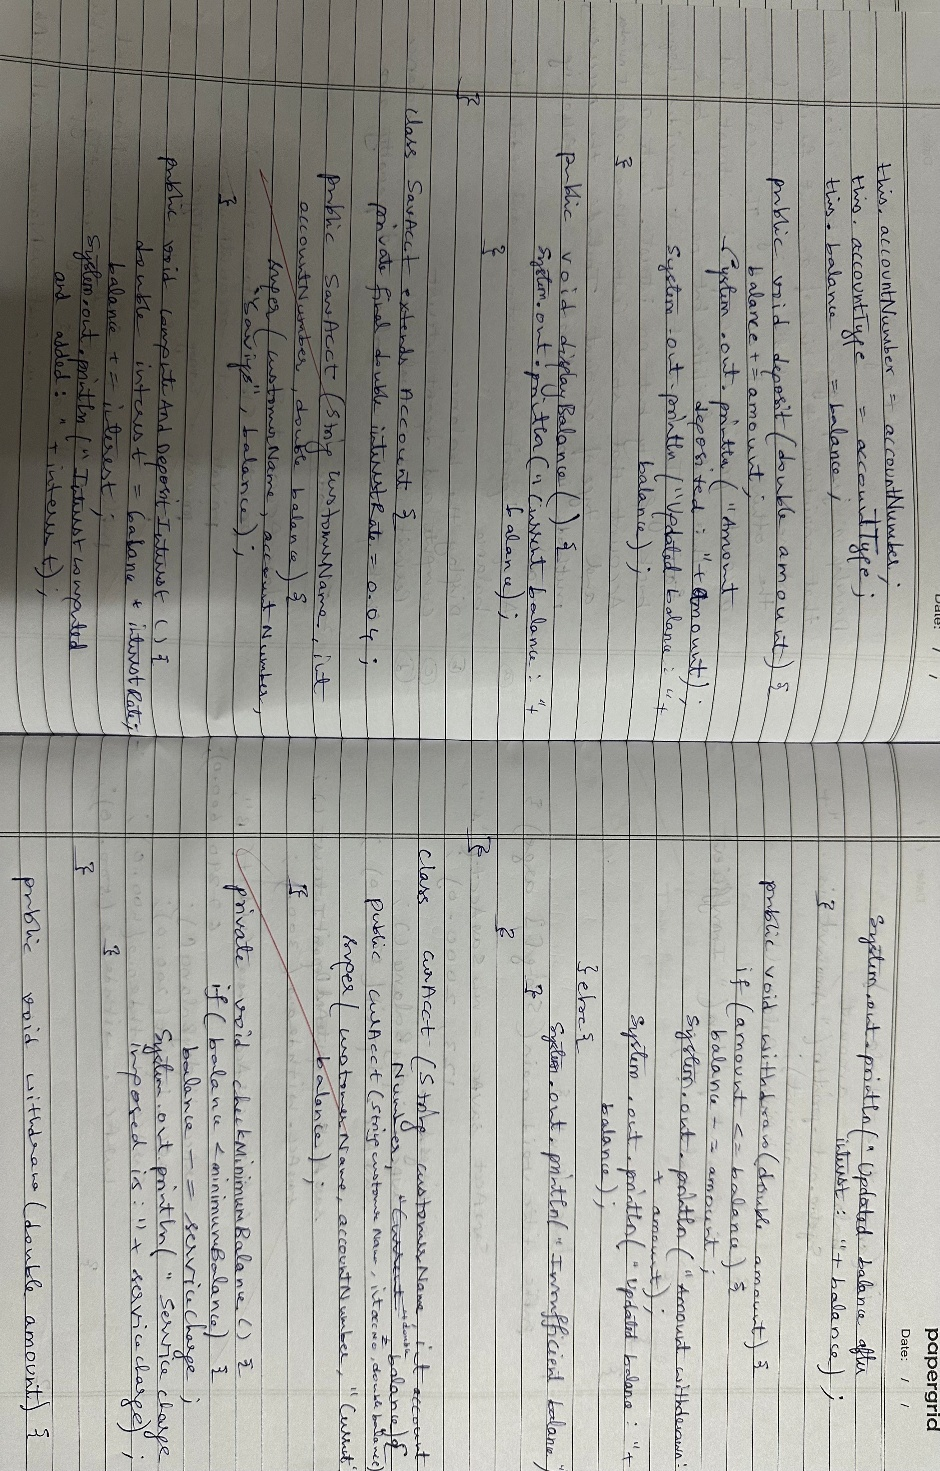 Date: / /
this. accountNumber = accountNumber;
this. accountType = accountType;
this. balance = balance;
public void deposit (double amount) {
balance += amount;
System.out.println ("Amount
deposited: "+ amount);
System.out.println ("Updated balance: "+
balance);
}
public void displayBalance () {
System.out.println ("Current balance: "+
balance);
}
}
class SavAcct extends Account {
private final double interestRate = 0.04;
public SavAcct (String customerName, int
accountNumber, double balance) {
super (customerName, accountNumber,
"Savings", balance);
}
public void computeAndDepositInterest () {
double interest = balance * interestRate;
balance += interest;
System.out.println ("Interest computed
and added: " + interest);
papergrid
Date: / /
System.out.println ("Updated balance after
interest: "+ balance);
}
public void withdraw (double amount) {
if (amount <= balance) {
balance -= amount;
System.out.println ("Amount withdrawn:
+ amount);
System.out.println ("Updated balance: "+
balance);
} else {
System.out.println ("Insufficient balance"
}
}
}
class curAcct (String customerName, int account
Number, balance) {
public curAcct (String customerName, int accno, double balance)
super (customerName, accountNumber, "Current"
balance);
}
private void checkMinimumBalance () {
if (balance < minimumBalance) {
balance -= serviceCharge;
System.out.println (" Service charge
imposed is: "+ service charge);
}
}
public void withdraw (double amount) {